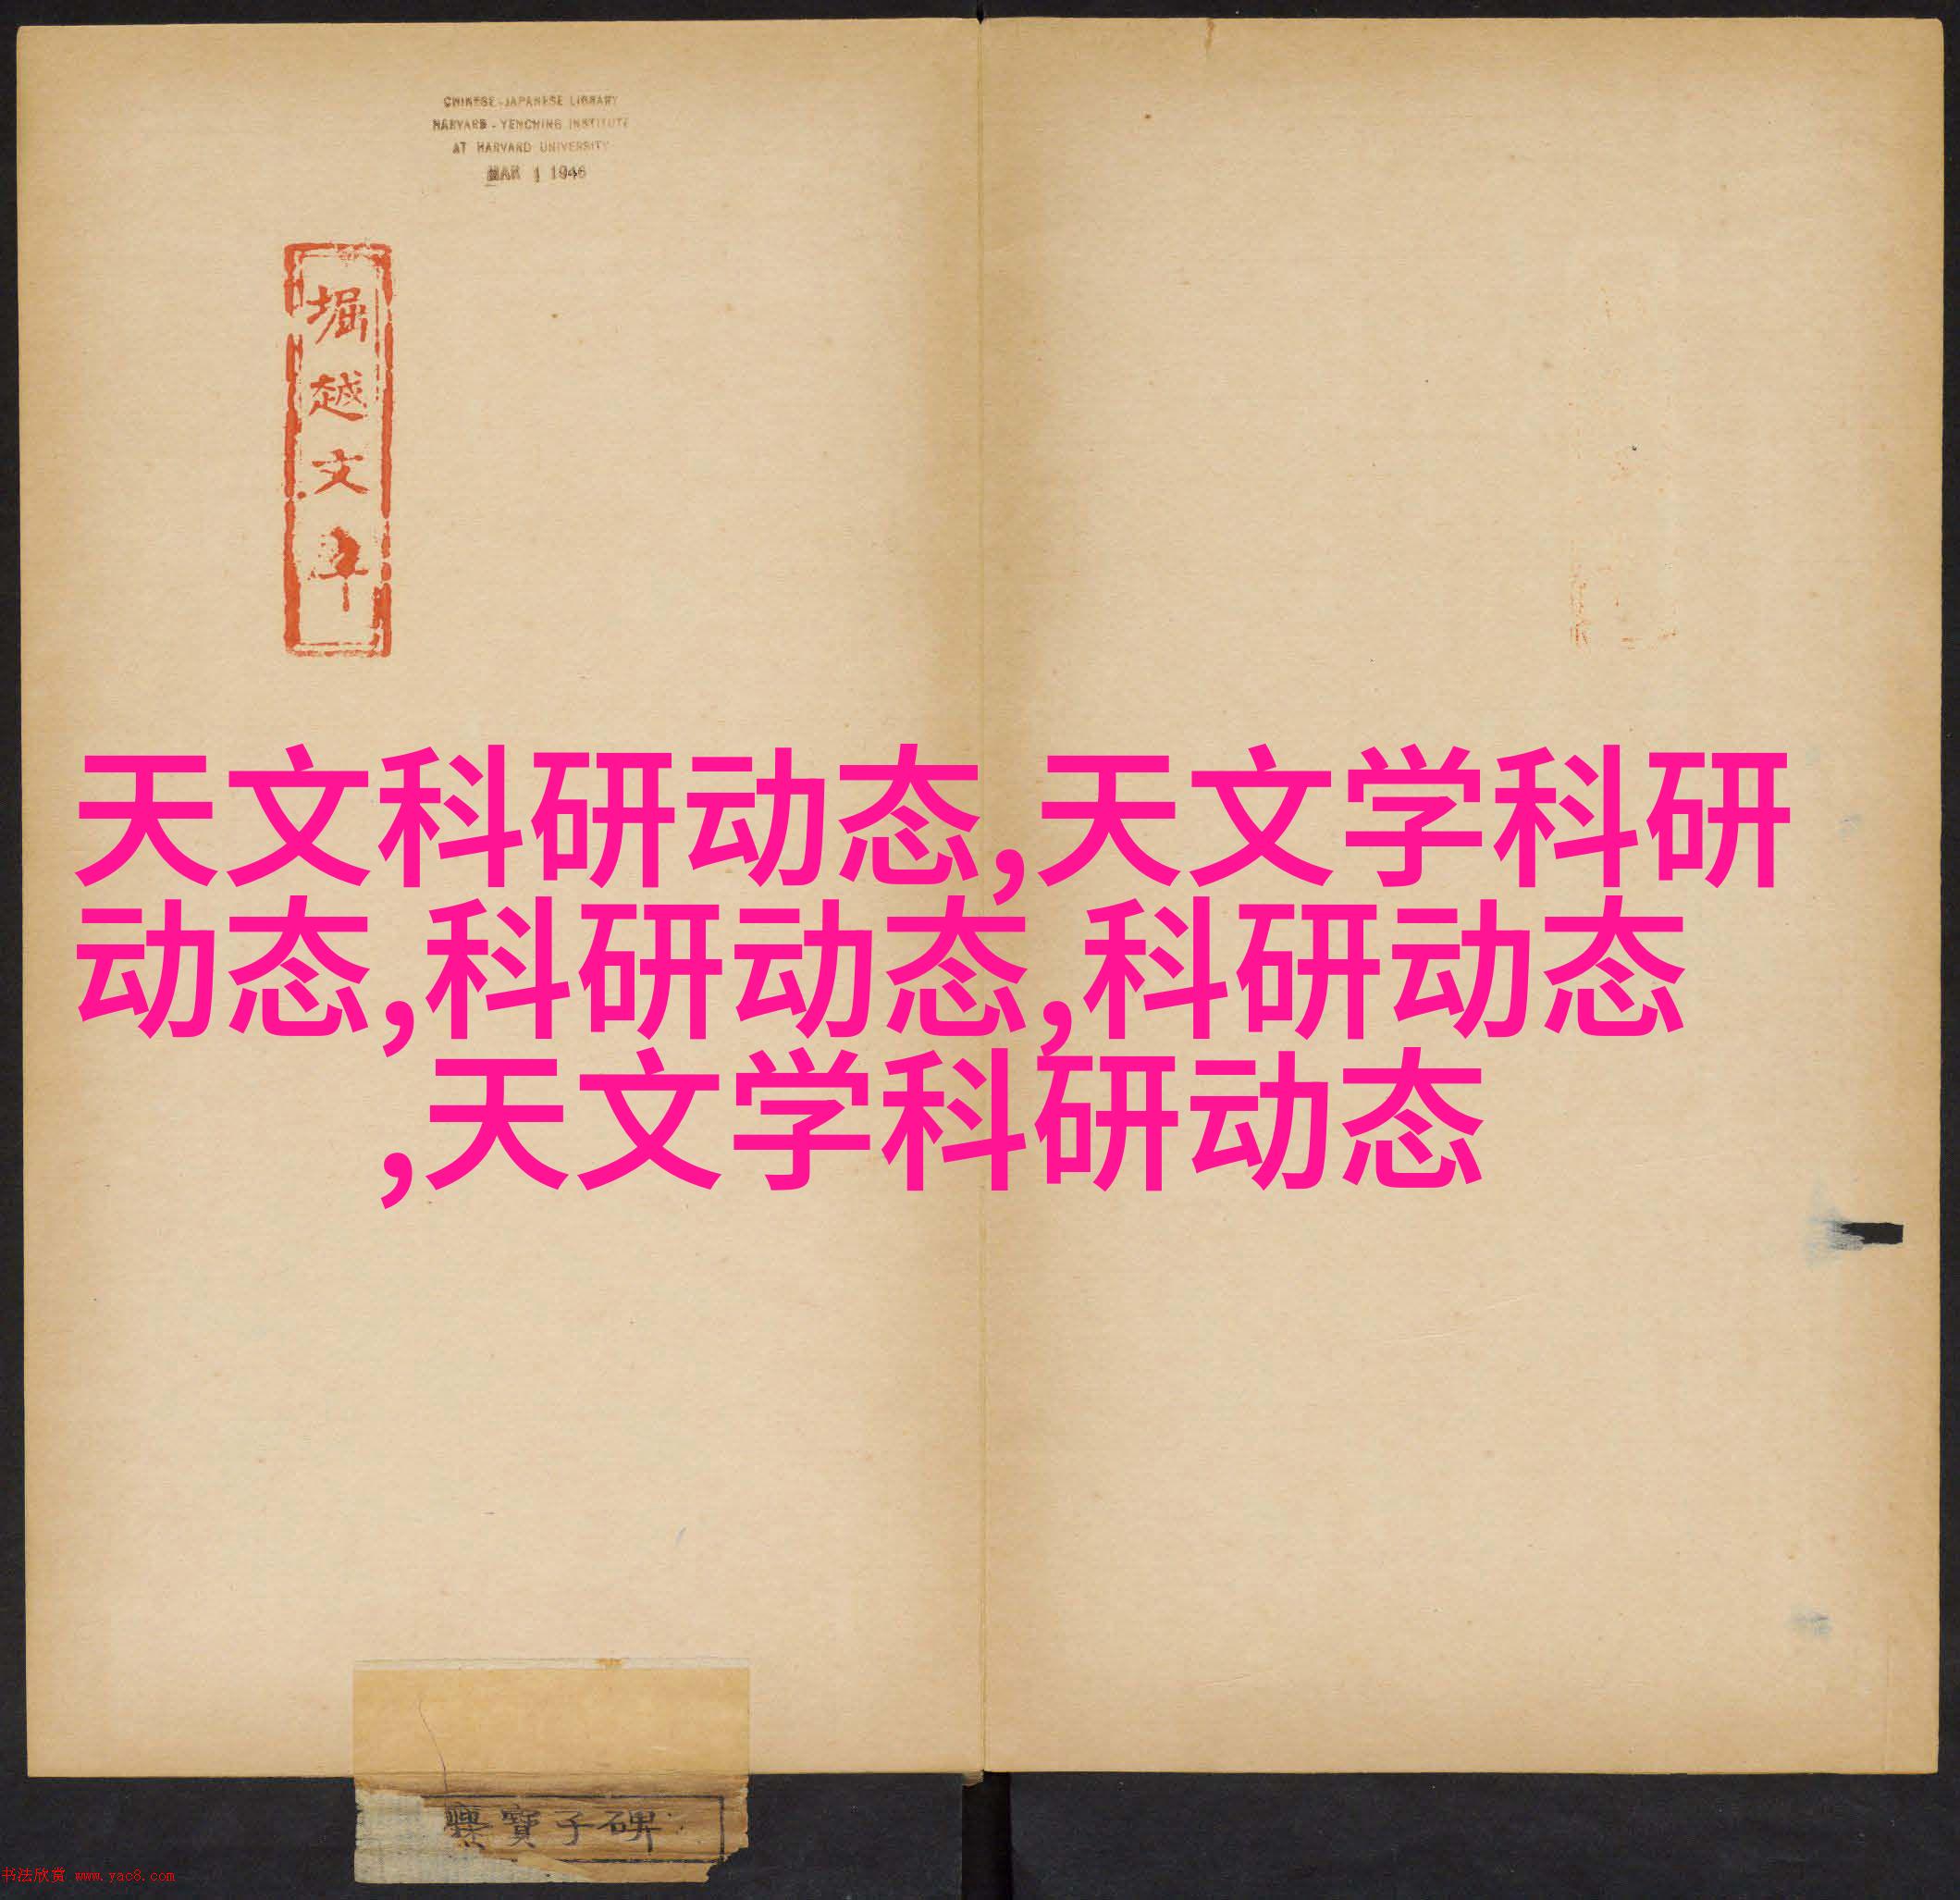 CHINESE-JAPANESE LIBRARY
HARVARD-YENCHING INSTITUTE
AT HARVARD UNIVERSITY
MAR 1 1946
堀越文
天文科研动态,天文学科研
动态,科研动态,科研动态
,天文学科研动态
爨寶子碑
书法欣赏 www.yac8.com